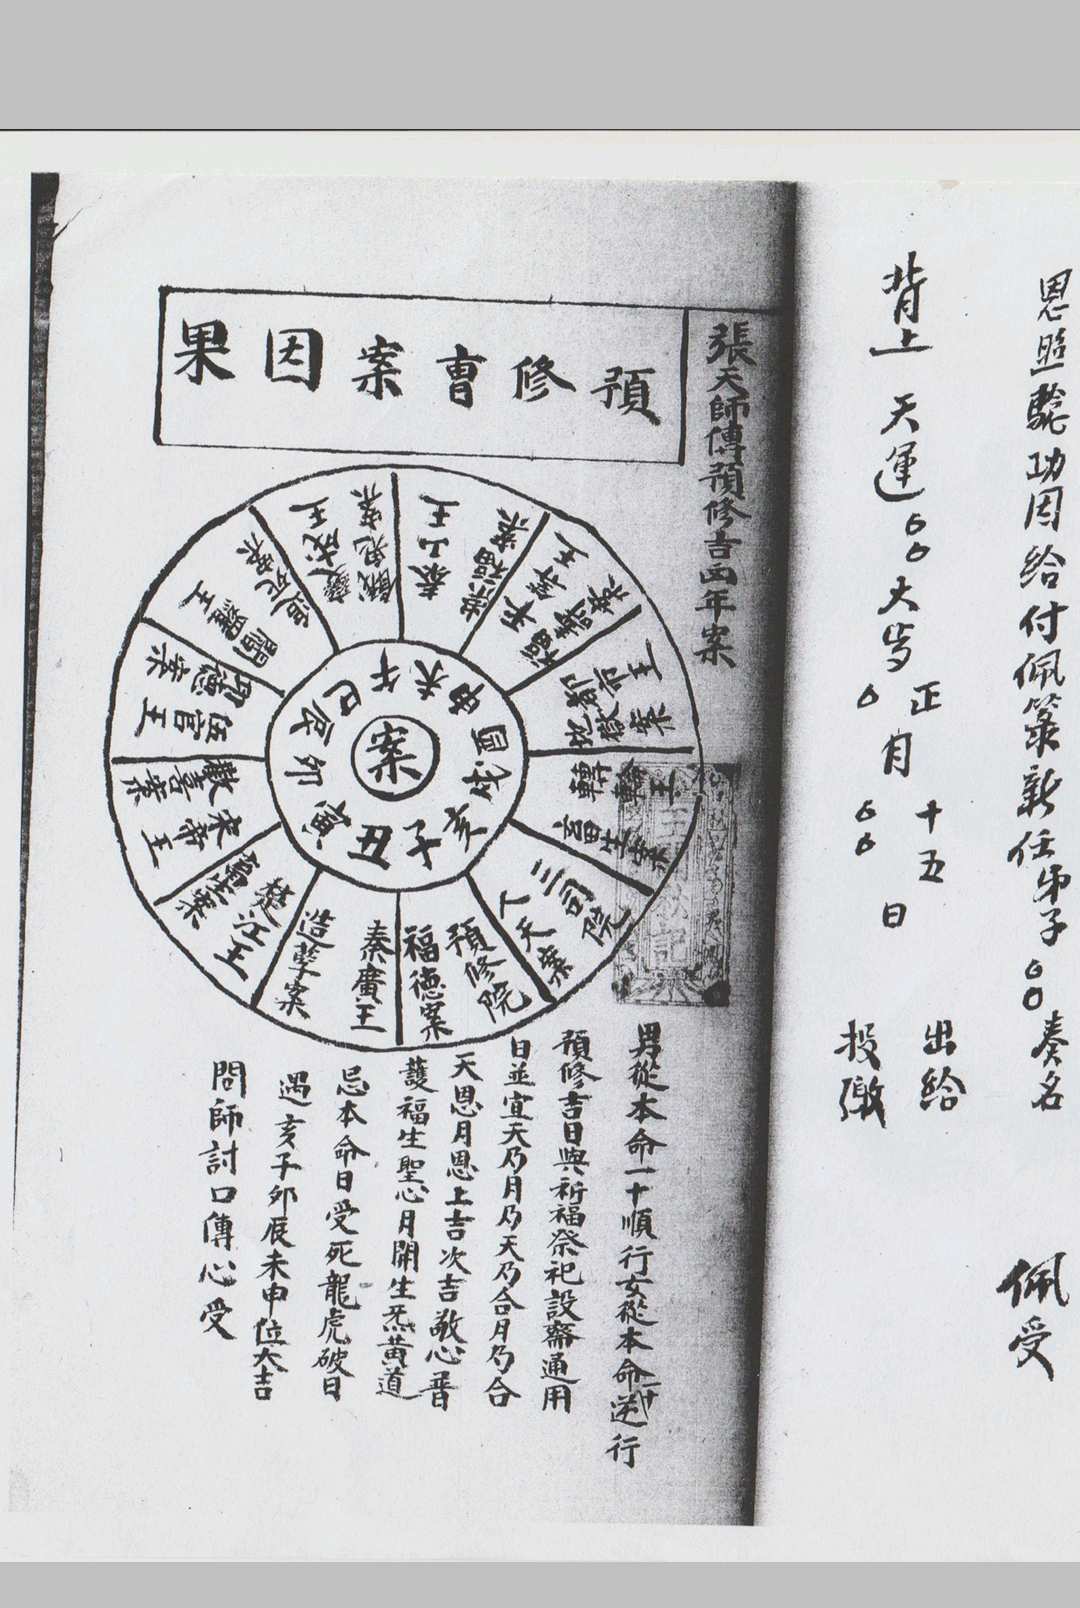 恩照駝功因給付佩籙新任弟子○○奏名 佩受
背上 天運○○大歲○○年正月十五日 出給
投繳
張天師傳預修吉凶年案
預修曹案因果
案
子丑寅卯辰巳午未申酉戌亥
預修院 福德案
秦廣王 造孽案
楚江王
宋帝王 歡喜案
伍官王
閻羅王
變成王 餓鬼案
泰山王 崇福案
平等王
都市王 地獄案
轉輪王 畜生案
三司院 人天案
男從本命一十順行女從本命一十逆行
預修吉日與祈福祭祀設齋通用
日並宜天乃月乃天乃合月乃合
天恩月恩上吉次吉敬心普
護福生聖心月開生炁黃道
忌本命日受死龍虎破日
遇亥子卯辰未申位大吉
問師討口傳心受